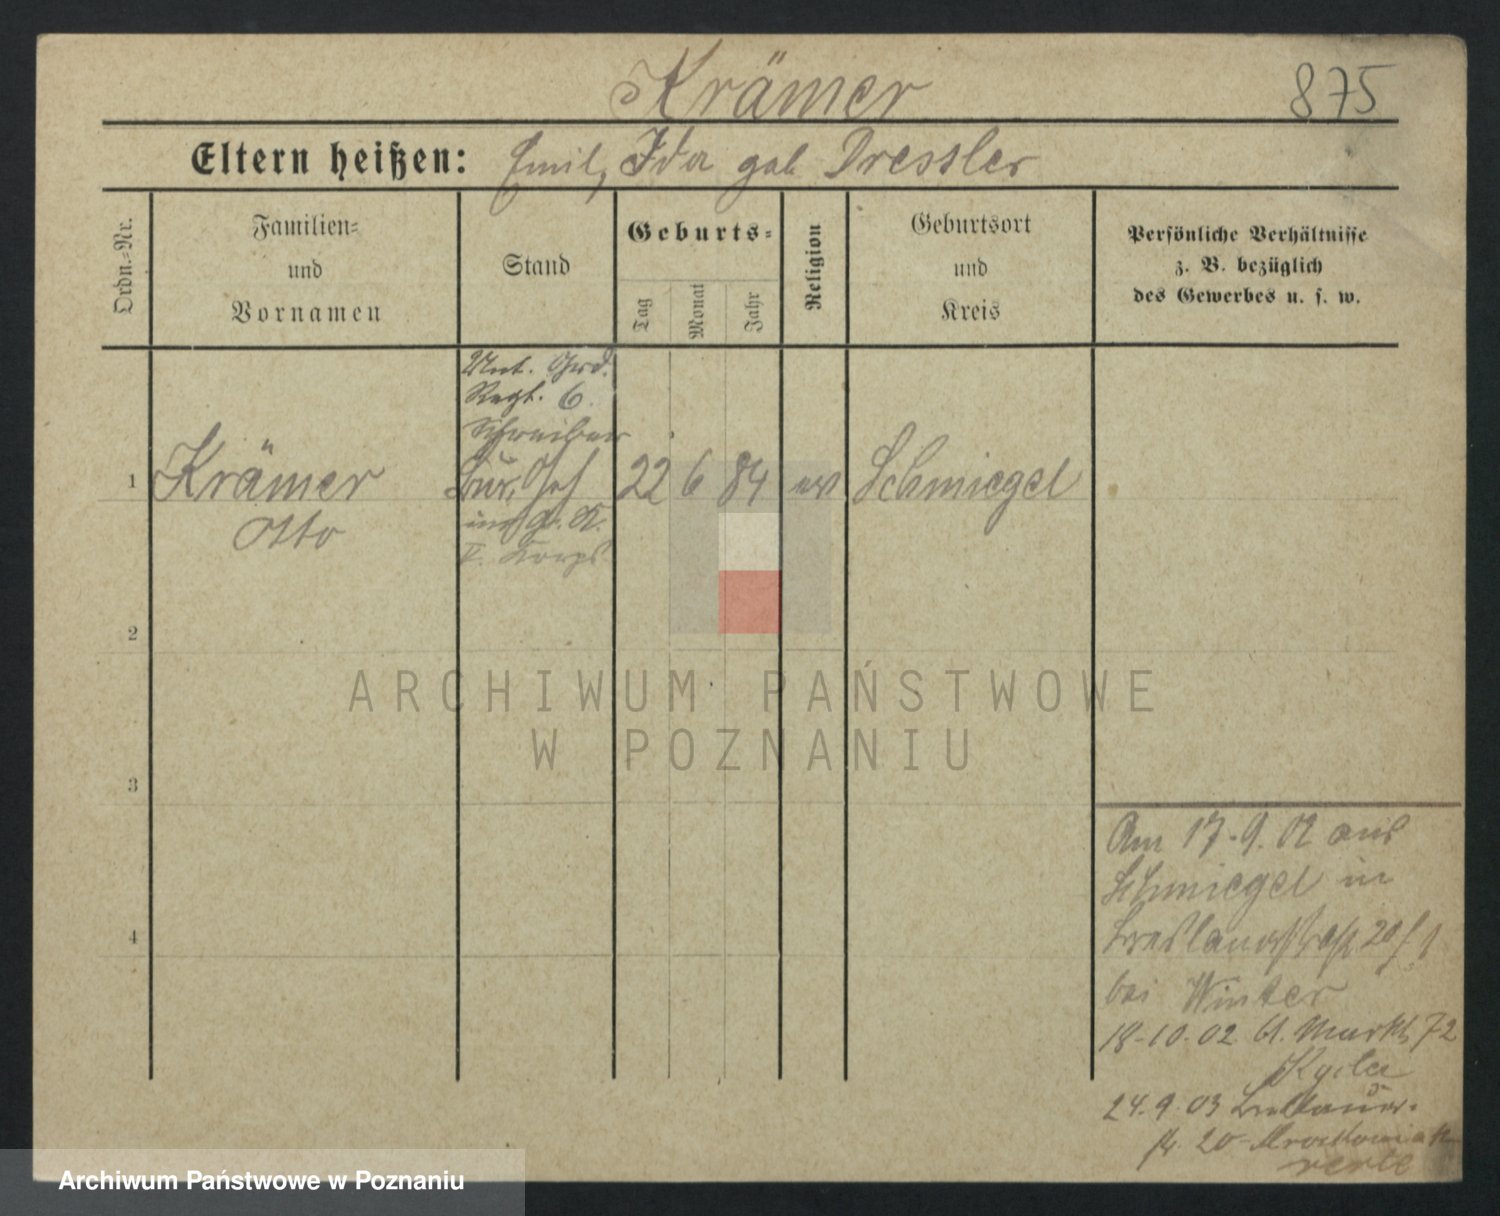 Krämer
875
Eltern heißen: Emil, Ida geb Dressler
Ordn.-Nr.
Familien-
und
Vornamen
Stand
Geburts-
Tag
Monat
Jahr
Religion
Geburtsort
und
Kreis
Persönliche Verhältnisse
z. B. bezüglich
des Gewerbes u. s. w.
Regt. 6
Schreiber
1 Krämer
Otto
Bür.
V. Korps
22 6 84 ev Schmiegel
2
3
4
Am 17-9.02 aus
Schmiegel in
20
bei Winter
18-10-02 Markt 72
24.9.03
20
verte
ARCHIWUM PAŃSTWOWE
W POZNANIU
Archiwum Państwowe w Poznaniu